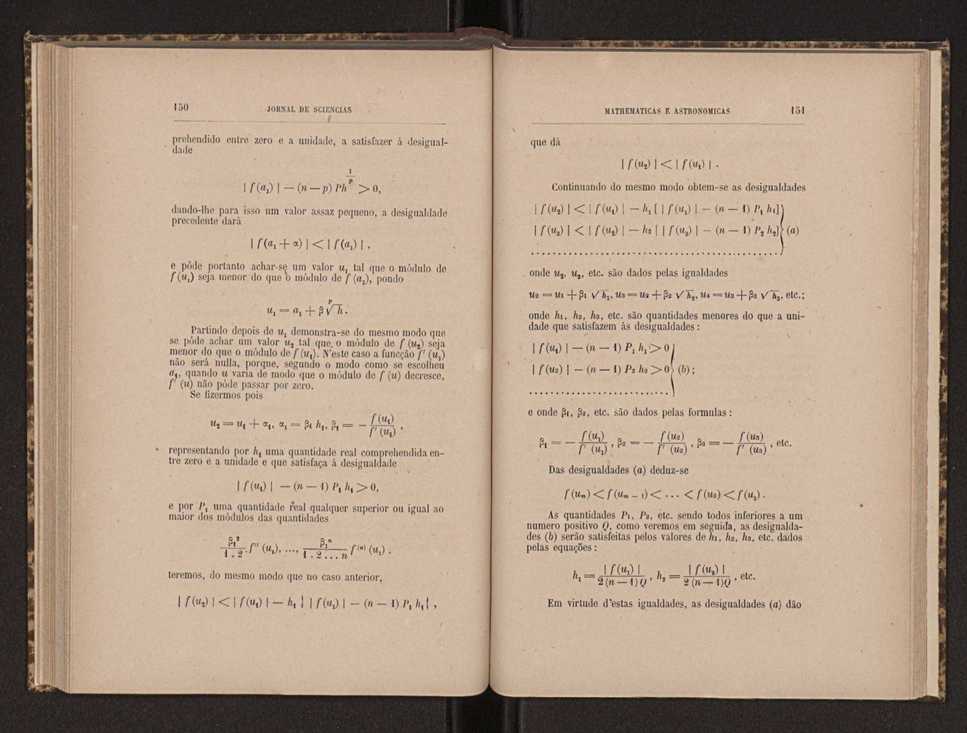 150 JORNAL DE SCIENCIAS
prehendido entre zero e a unidade, a satisfazer á desigual-
dade
| f (a₁) | — (n — p) Ph^{1/p} > 0,
dando-lhe para isso um valor assaz pequeno, a desigualdade
precedente dará
| f (a₁ + α) | < | f (a₁) | ,
e póde portanto achar-se um valor u₁ tal que o módulo de
f (u₁) seja menor do que o módulo de f (a₁), pondo
u₁ = a₁ + β \sqrt[p]{h} .
Partindo depois de u₁ demonstra-se do mesmo modo que
se póde achar um valor u₂ tal que o módulo de f (u₂) seja
menor do que o módulo de f (u₁). N'este caso a funcção f' (u₁)
não será nulla, porque, segundo o modo como se escolheu
a₁, quando u varia de modo que o módulo de f (u) decresce,
f' (u) não póde passar por zero.
Se fizermos pois
u₂ = u₁ + α₁, α₁ = β₁ h₁, β₁ = — f (u₁) / f' (u₁) ,
representando por h₁ uma quantidade real comprehendida en-
tre zero e a unidade e que satisfaça á desigualdade
| f (u₁) | — (n — 1) P₁ h₁ > 0,
e por P₁ uma quantidade real qualquer superior ou igual ao
maior dos módulos das quantidades
β₁² / 1 . 2 . f'' (u₁), ..., β₁ⁿ / 1 . 2 ... n f⁽ⁿ⁾ (u₁) .
teremos, do mesmo modo que no caso anterior,
| f (u₂) | < | f (u₁) | — h₁ { | f (u₁) | — (n — 1) P₁ h₁ { ,
MATHEMATICAS E ASTRONOMICAS 151
que dá
| f (u₂) | < | f (u₁) | .
Continuando do mesmo modo obtem-se as desigualdades
| f (u₂) | < | f (u₁) | — h₁ [ | f (u₁) | — (n — 1) P₁ h₁]
| f (u₃) | < | f (u₂) | — h₂ [ | f (u₂) | — (n — 1) P₂ h₂] } (a)
. . . . . . . . . . . . . . . . . . . . . . . .
onde u₂, u₃, etc. são dados pelas igualdades
u₂ = u₁ + β₁ √h₁, u₃ = u₂ + β₂ √h₂, u₄ = u₃ + β₃ √h₃, etc.;
onde h₁, h₂, h₃, etc. são quantidades menores do que a uni-
dade que satisfazem ás desigualdades :
| f (u₁) | — (n — 1) P₁ h₁ > 0
| f (u₂) | — (n — 1) P₂ h₂ > 0 } (b) ;
. . . . . . . . . . . . . . . . . .
e onde β₁, β₂, etc. são dados pelas formulas :
β₁ = — f (u₁) / f' (u₁) , β₂ = — f (u₂) / f' (u₂) , β₃ = — f (u₃) / f' (u₃) , etc.
Das desigualdades (a) deduz-se
f (uₙ) < f (uₙ ₋ ₁) < ... < f (u₂) < f (u₁) .
As quantidades P₁, P₂, etc. sendo todos inferiores a um
numero positivo Q, como veremos em seguida, as desigualda-
des (b) serão satisfeitas pelos valores de h₁, h₂, h₃, etc. dados
pelas equações :
h₁ = | f (u₁) | / 2 (n — 1) Q , h₂ = | f (u₂) | / 2 (n — 1) Q , etc.
Em virtude d'estas igualdades, as desigualdades (a) dão